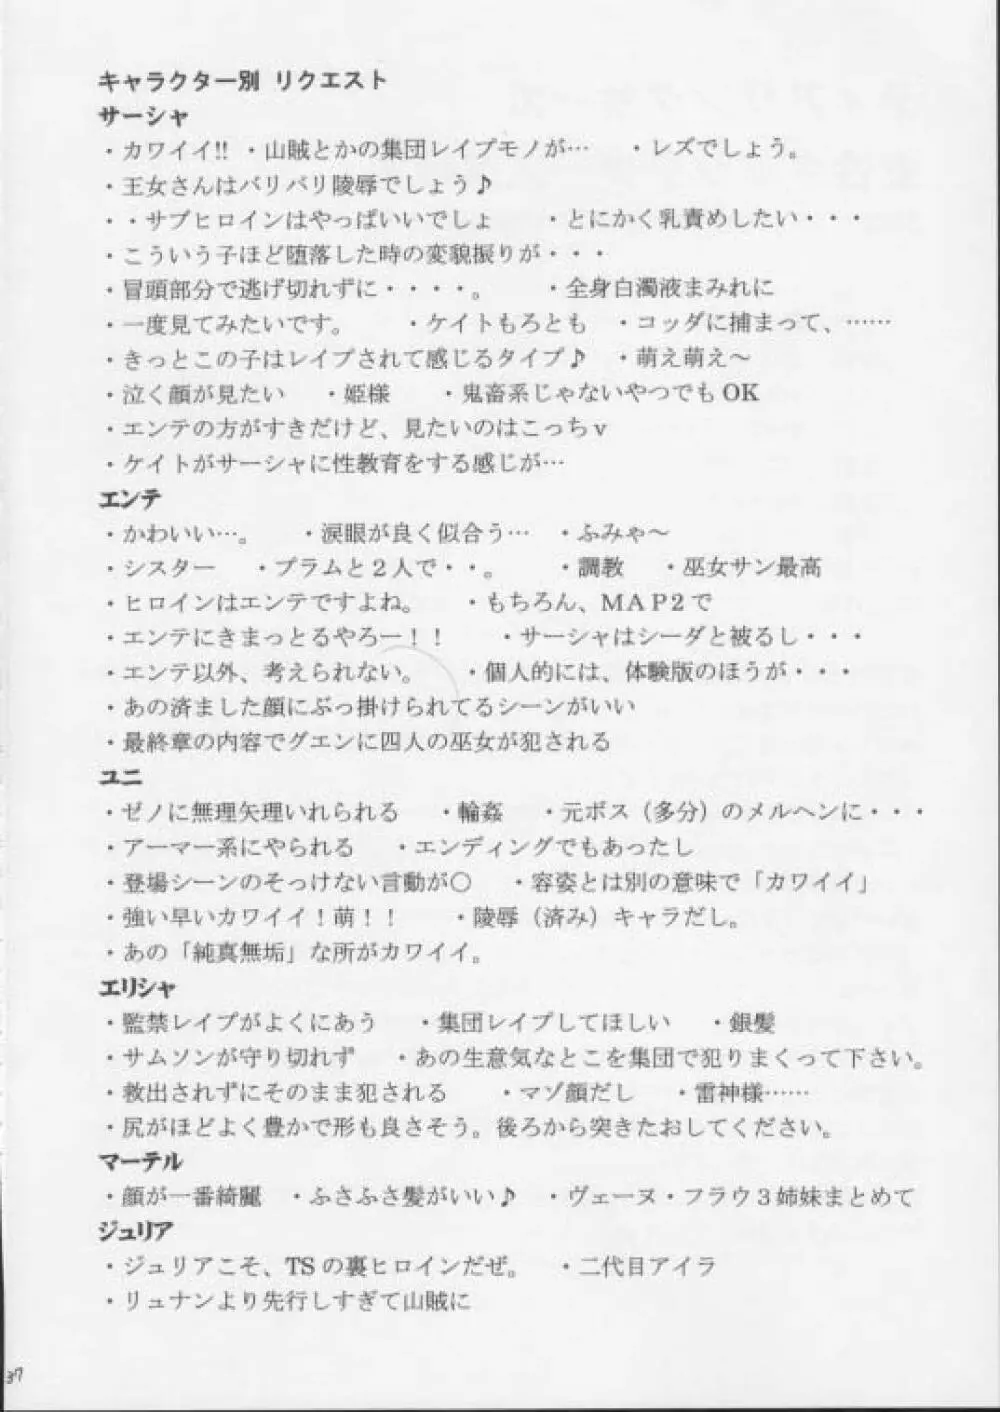 キャラクター別 リクエスト
サーシャ
・カワイイ!! ・山賊とかの集団レイプモノが… ・レズでしょう。
・王女さんはバリバリ陵辱でしょう♪
・・サブヒロインはやっぱいいでしょ ・とにかく乳責めしたい・・・
・こういう子ほど堕落した時の変貌振りが・・・
・冒頭部分で逃げ切れずに・・・・。 ・全身白濁液まみれに
・一度見てみたいです。 ・ケイトもろとも ・コッダに捕まって、……
・きっとこの子はレイプされて感じるタイプ♪ ・萌え萌え～
・泣く顔が見たい ・姫様 ・鬼畜系じゃないやつでもOK
・エンテの方がすきだけど、見たいのはこっちｖ
・ケイトがサーシャに性教育をする感じが…
エンテ
・かわいい…。 ・涙眼が良く似合う… ・ふみゃ～
・シスター ・プラムと２人で・・。 ・調教 ・巫女サン最高
・ヒロインはエンテですよね。 ・もちろん、ＭＡＰ2で
・エンテにきまっとるやろー！！ ・サーシャはシーダと被るし・・・
・エンテ以外、考えられない。 ・個人的には、体験版のほうが・・・
・あの済ました顔にぶっ掛けられてるシーンがいい
・最終章の内容でグエンに四人の巫女が犯される
ユニ
・ゼノに無理矢理いれられる ・輪姦 ・元ボス（多分）のメルヘンに・・・
・アーマー系にやられる ・エンディングでもあったし
・登場シーンのそっけない言動が〇 ・容姿とは別の意味で「カワイイ」
・強い早いカワイイ！萌！！ ・陵辱（済み）キャラだし。
・あの「純真無垢」な所がカワイイ。
エリシャ
・監禁レイプがよくにあう ・集団レイプしてほしい ・銀髪
・サムソンが守り切れず ・あの生意気なとこを集団で犯りまくって下さい。
・救出されずにそのまま犯される ・マゾ顔だし ・雷神様……
・尻がほどよく豊かで形も良さそう。後ろから突きたおしてください。
マーテル
・顔が一番綺麗 ・ふさふさ髪がいい♪ ・ヴェーヌ・フラウ３姉妹まとめて
ジュリア
・ジュリアこそ、TSの裏ヒロインだぜ。 ・二代目アイラ
・リュナンより先行しすぎて山賊に
37